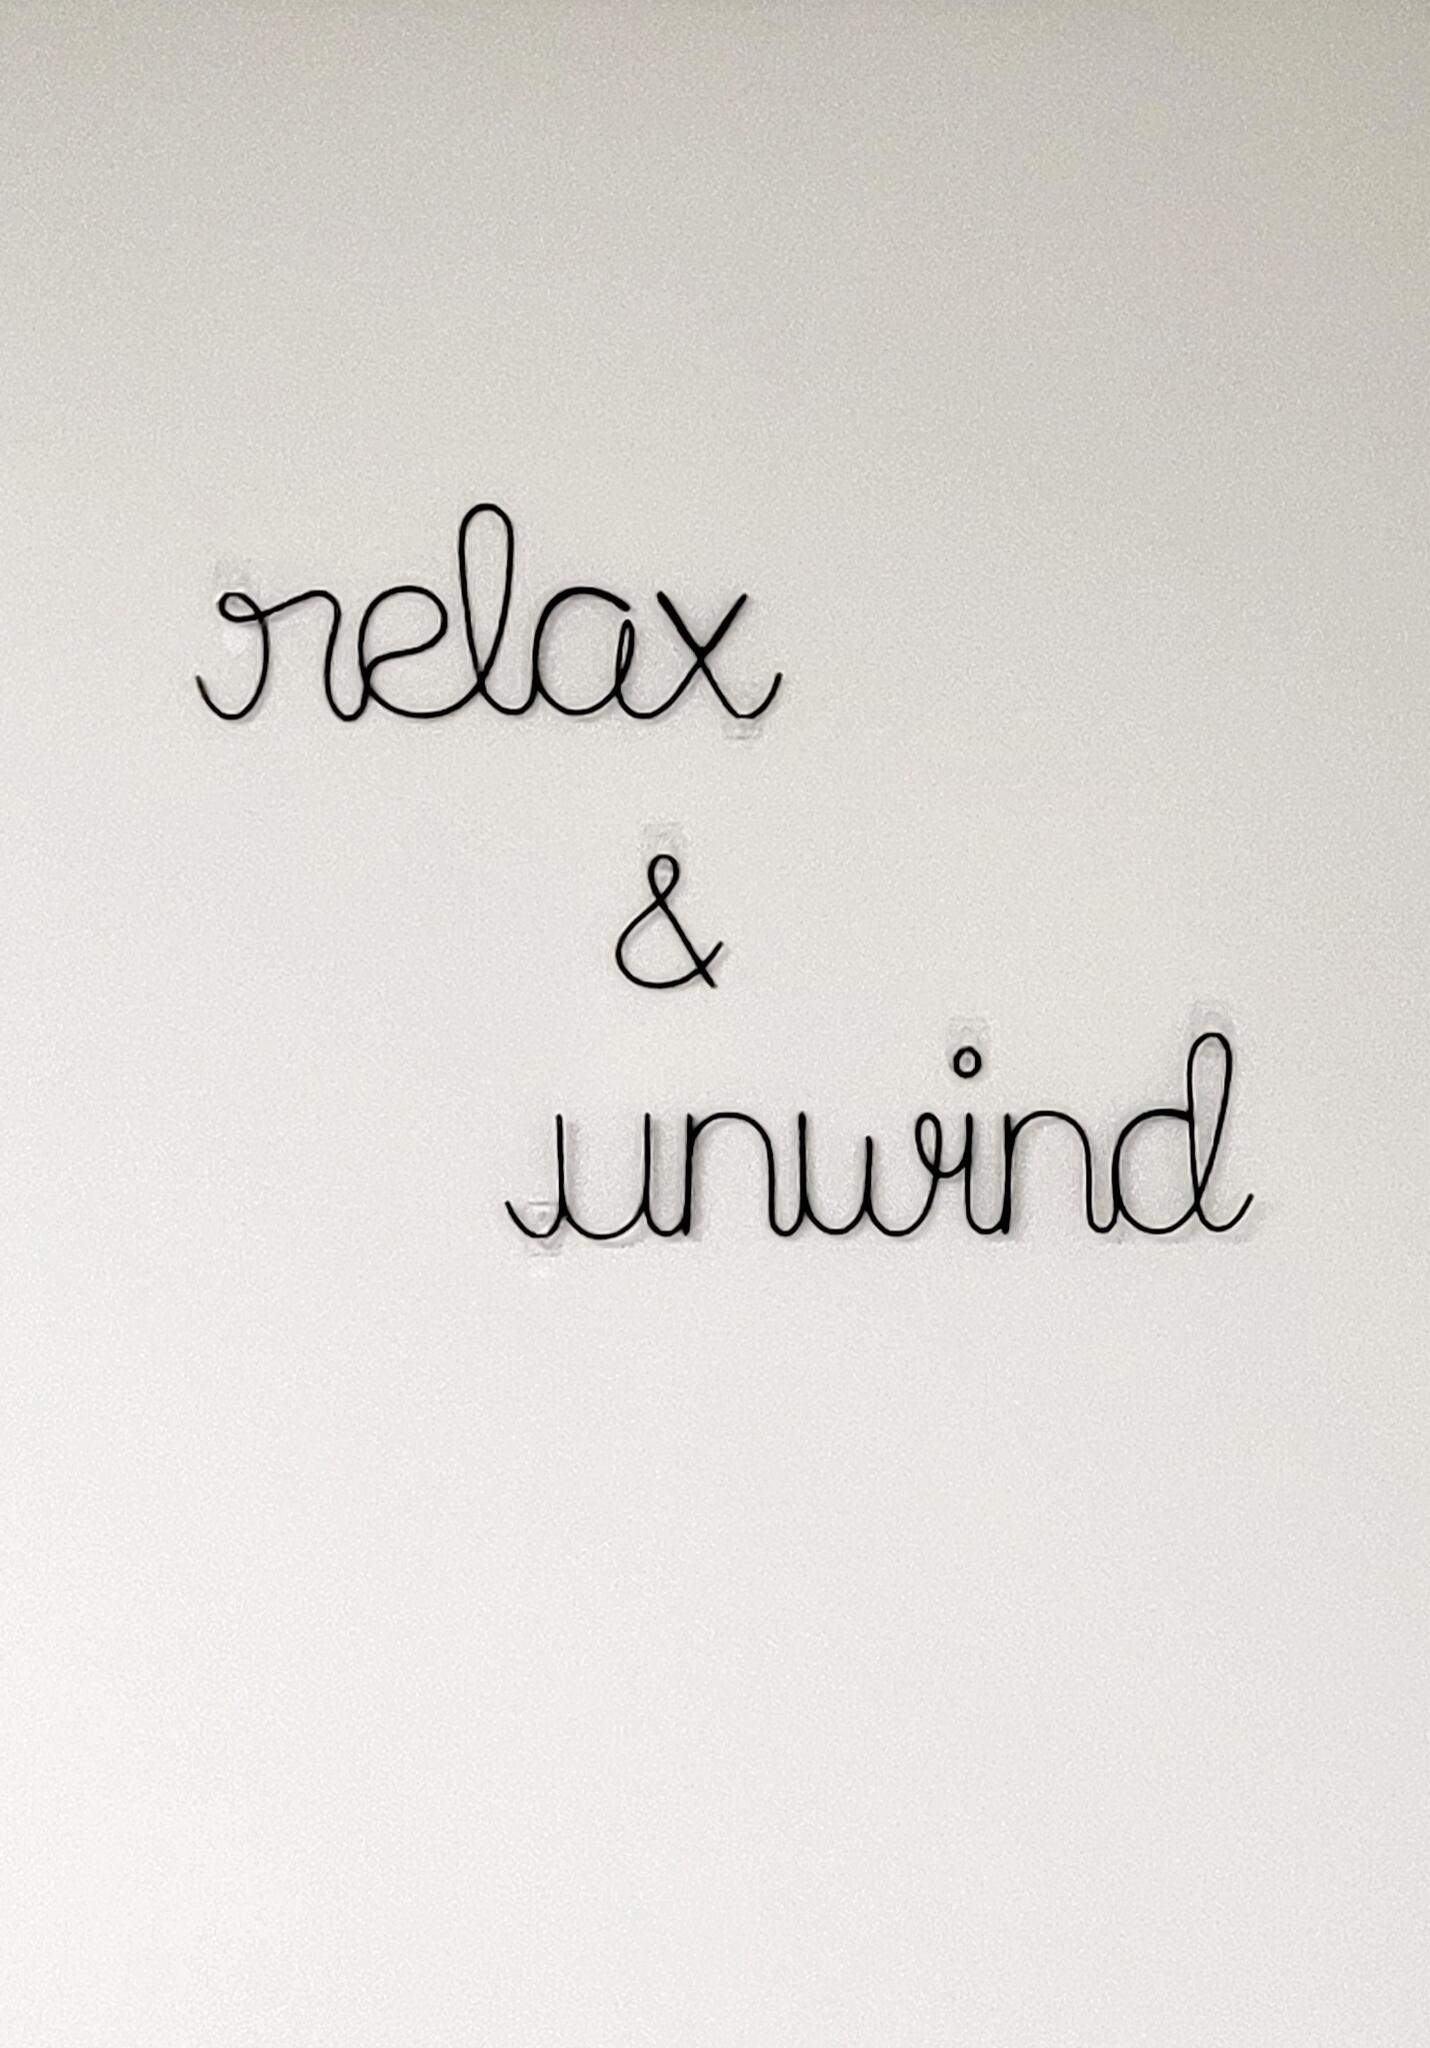 relax
&
unwind